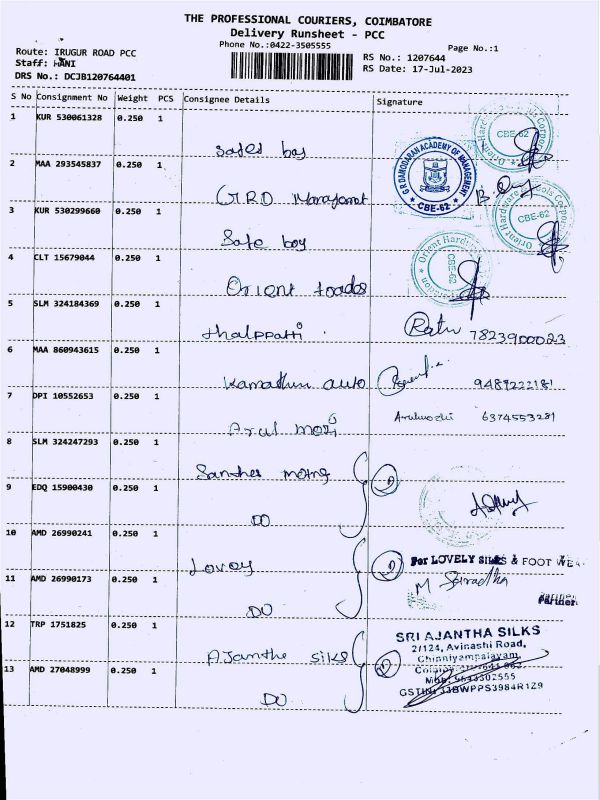 THE PROFESSIONAL COURIERS, COIMBATORE
Delivery Runsheet - PCC
Phone No.:0422-3505555
Page No.:1
Route: IRUGUR ROAD PCC
Staff: MANI
DRS No.: DCJB120764401
RS No.: 1207644
RS Date: 17-Jul-2023
S No Consignment No Weight PCS Consignee Details Signature
1 KUR 530061328 0.250 1
Safes boy
CBE-62
2 MAA 293545837 0.250 1
GRD Management
G R DAMODARAN ACADEMY OF MANAGEMENT
* CBE-62 *
3 KUR 530299660 0.250 1
Safe boy
CBE-62
4 CLT 15679044 0.250 1
Orient toados
Orient Hard
CBE-62
5 SLM 324184369 0.250 1
thalppatti
Ratn 7823900023
6 MAA 860943615 0.250 1
Kamathun auto
9489222181
7 DPI 10552653 0.250 1
Arul mozi
Arulmozhi 6374553281
8 SLM 324247293 0.250 1
Santhes
9 EDQ 15900430 0.250 1
DO
2
10 AMD 26990241 0.250 1
Lovoy
2
For LOVELY SILKS & FOOT WEA
11 AMD 26990173 0.250 1
DO
M Sairadha
Partner
12 TRP 1751825 0.250 1
AJantha silks
2
SRI AJANTHA SILKS
2/124, Avinashi Road,
Chinniyampalayam,
13 AMD 27048999 0.250 1
DO
GSTIN: 33BWPPS3984R1Z9